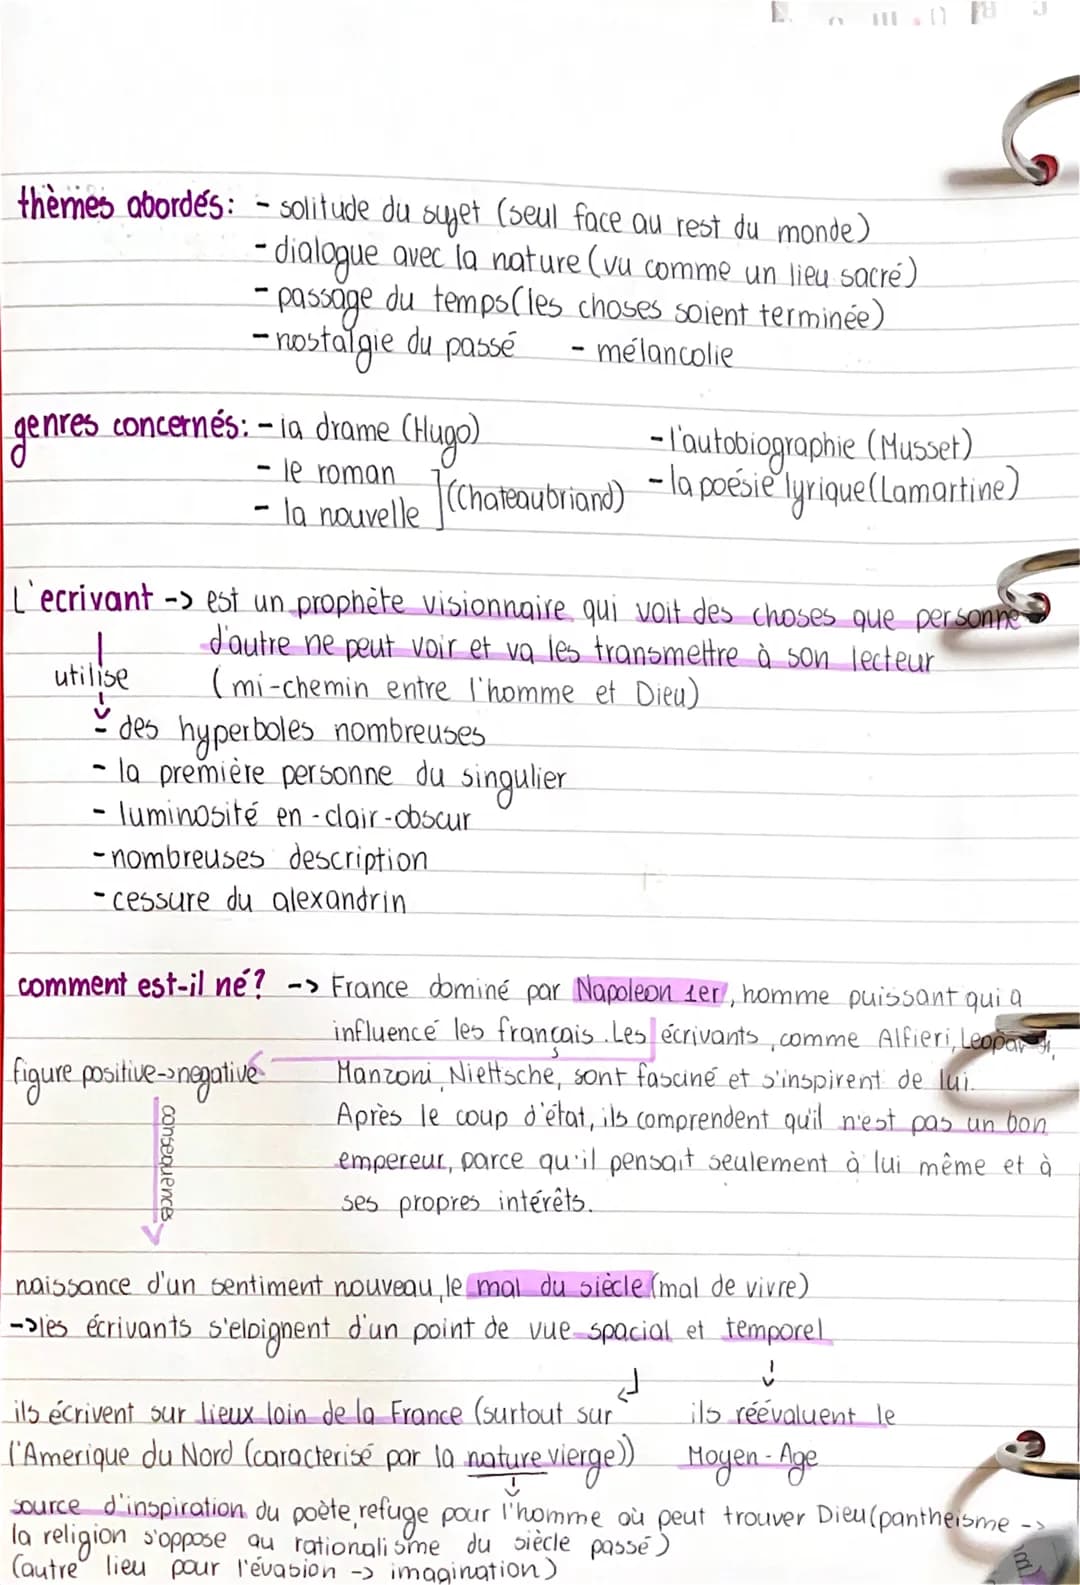 thèmes abordés: - solitude du sujet (seul face au rest du monde)
- dialogue avec la nature (vu comme un lieu sacré)
- passage du temps (les choses soient terminée)
- nostalgie du passé - mélancolie
genres concernés: - ia drame (Hugo) - l'autobiographie (Musset)
- le roman - la poésie lyrique (Lamartine)
- la nouvelle ](Chateaubriand)
L'ecrivant -> est un prophète visionnaire qui voit des choses que personne
d'autre ne peut voir et va les transmettre à son lecteur
utilise (mi-chemin entre l'homme et Dieu)
- des hyperboles nombreuses
- la première personne du singulier
- luminosité en - clair - obscur
- nombreuses description
- cessure du alexandrin
comment est-il né? -> France dominé par Napoleon 1er, homme puissant qui a
influencé les français. Les écrivants, comme Alfieri, Leopardi,
figure positive->negative Manzoni, Niettsche, sont fasciné et s'inspirent de lui.
Après le coup d'état, ils comprendent qu'il n'est pas un bon
consequences empereur, parce qu'il pensait seulement à lui même et à
ses propres intérêts.
naissance d'un sentiment nouveau, le mal du siècle (mal de vivre)
->les écrivants s'eloignent d'un point de vue spacial et temporel
ils écrivent sur lieux loin de la France (surtout sur ils réévaluent le
l'Amerique du Nord (caracterisé par la nature vierge)) Moyen-Age
source d'inspiration du poète, refuge pour l'homme où peut trouver Dieu (pantheisme ->
la religion s'oppose au rationalisme du siècle passé)
(autre lieu pour l'évasion -> imagination)